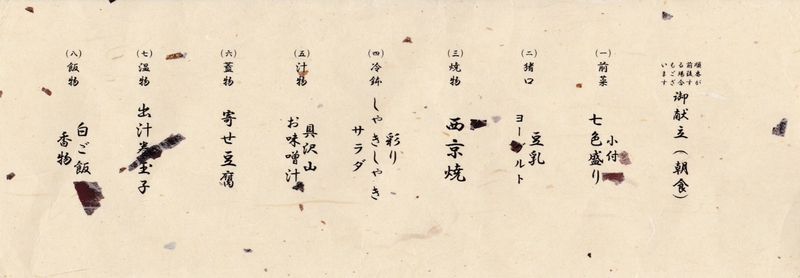 御献立(朝食)
順番が
前後す
る場合
もござ
います
(一)前菜
小付
七色盛り
(二)猪口
豆乳
ヨーグルト
(三)焼物
西京焼
(四)冷鉢
彩り
しゃきしゃき
サラダ
(五)汁物
具沢山
お味噌汁
(六)蓋物
寄せ豆腐
(七)温物
出汁巻玉子
(八)飯物
白ご飯
香物